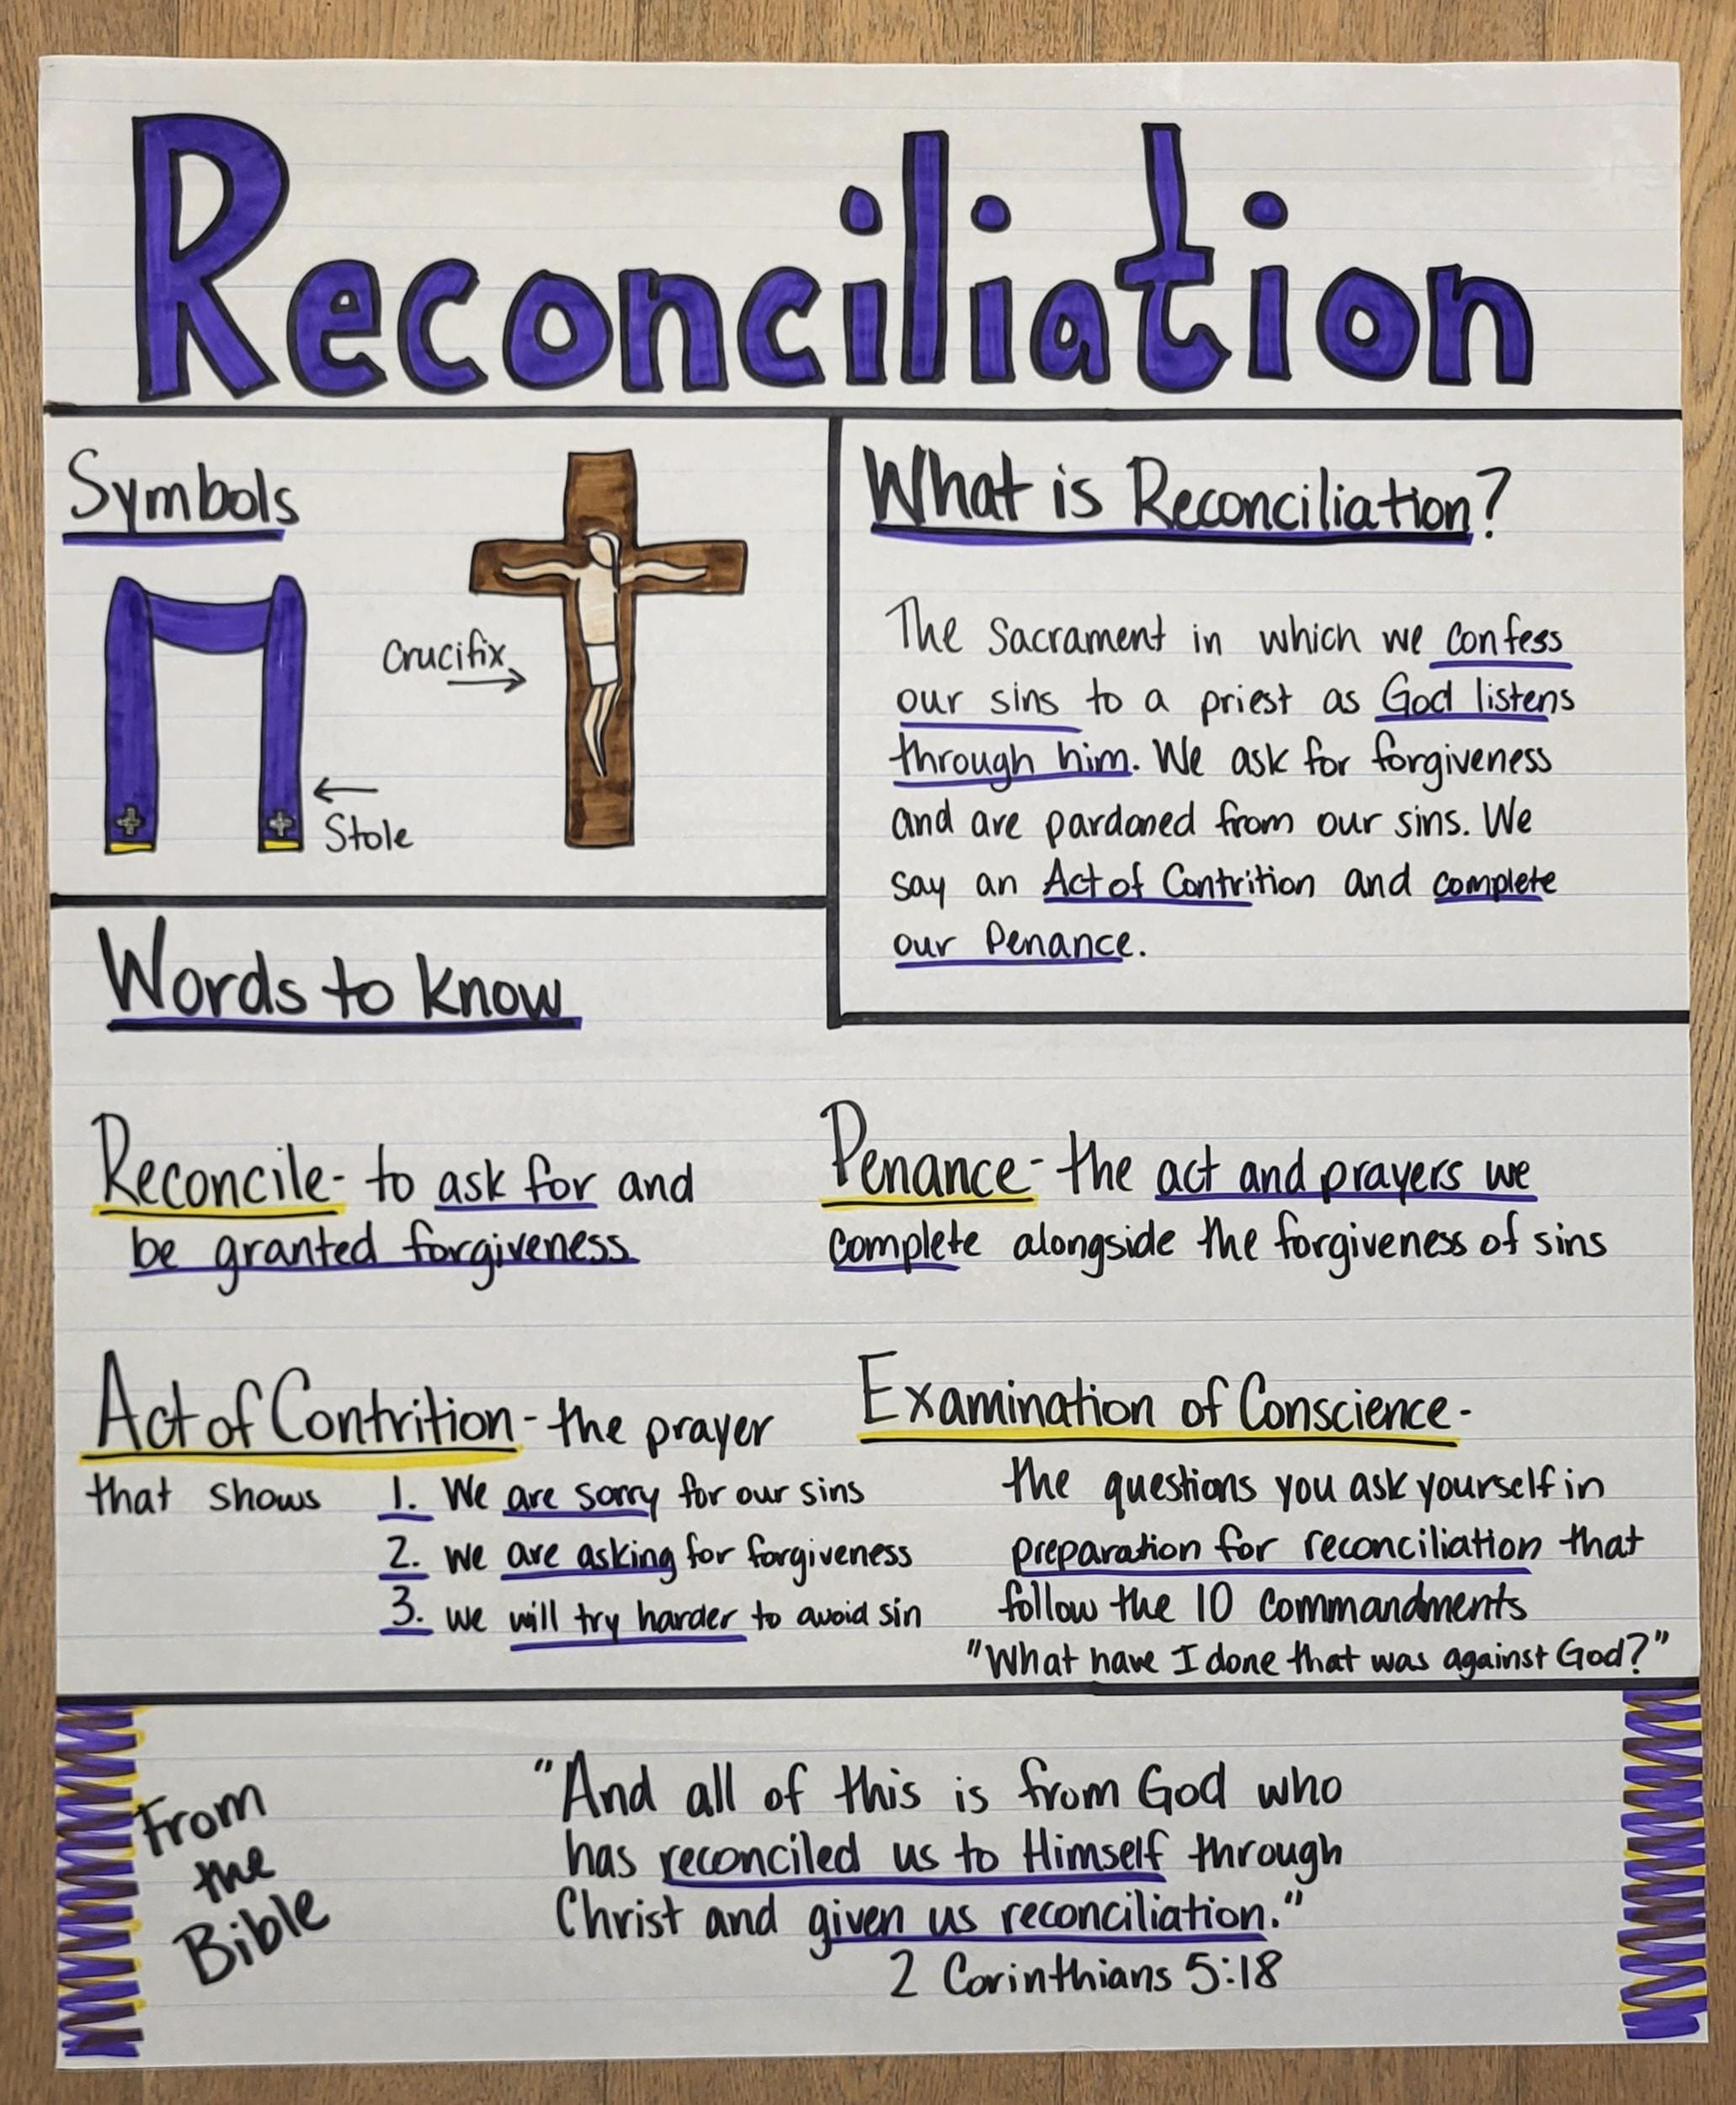 Reconciliation
Symbols
Crucifix
Stole
What is Reconciliation?
The Sacrament in which we confess
our sins to a priest as God listens
through him. We ask for forgiveness
and are pardoned from our sins. We
say an Act of Contrition and complete
our Penance.
Words to know
Reconcile- to ask for and
be granted forgiveness
Penance- the act and prayers we
complete alongside the forgiveness of sins
Act of Contrition- the prayer
that shows 1. We are sorry for our sins
2. we are asking for forgiveness
3. we will try harder to avoid sin
Examination of Conscience-
the questions you ask yourself in
preparation for reconciliation that
follow the 10 commandments
"What have I done that was against God?"
From
the
Bible
"And all of this is from God who
has reconciled us to Himself through
Christ and given us reconciliation."
2 Corinthians 5:18